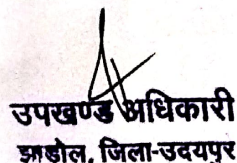 उपखण्ड अधिकारी
झाडोल, जिला-उदयपुर